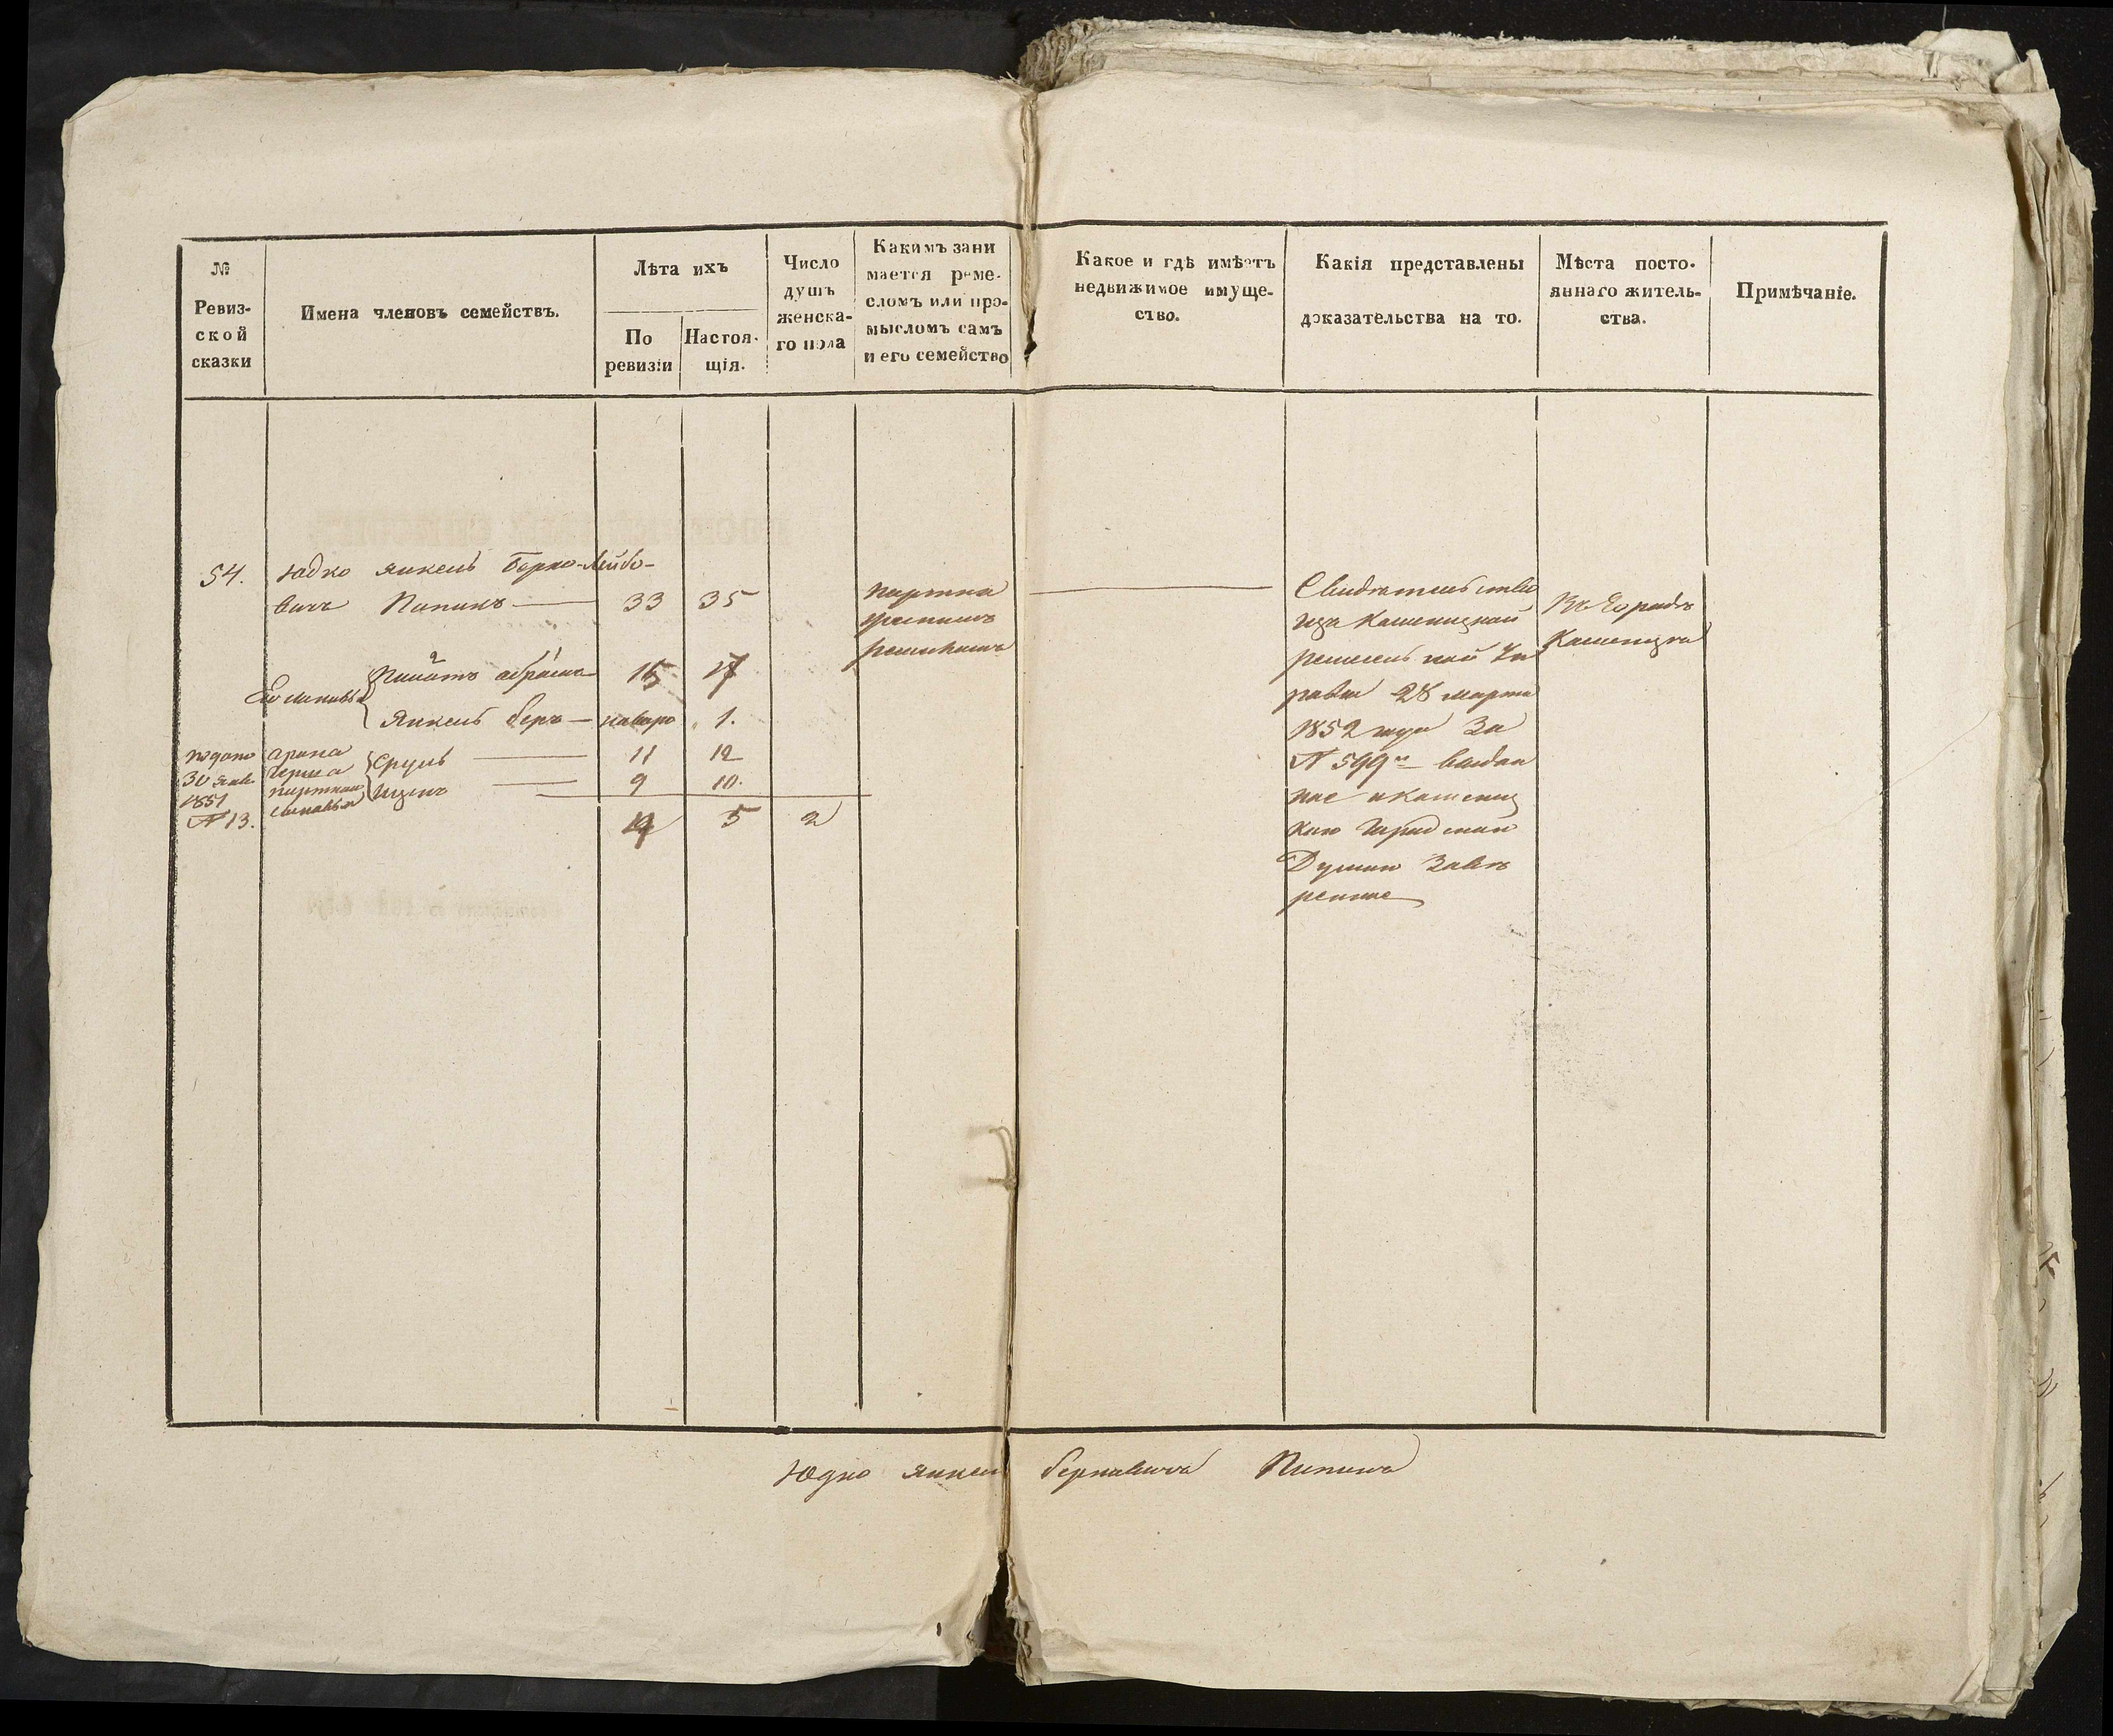 №
Ревиз-
ской
сказки
Имена членовъ семействъ.
Лѣта ихъ
По
ревизіи
Настоя-
щія.
Число
душъ
женска-
го пола
Какимъ зани
мается реме-
сломъ или про-
мысломъ самъ
и его семейство
Какое и гдѣ имѣетъ
недвижимое имуще-
ство.
Какія представлены
доказательства на то.
Мѣста посто-
яннаго житель-
ства.
Примѣчаніе.
54. Юдко Янкель Берко-Лейбо-
вичъ Пипикъ 33 35
портна
ремесломъ
Свидѣтельство
изъ Каменецкой
ремеслен ной Уп
равы 28 марта
1852 года За
№ 599м выдан
ное и Каменец
кою Городскою
Думою Завѣ
ренное
Въ Городѣ
Каменцѣ
Его сыновья
абрамъ 15 17
Янкель Беръ 1.
30 Янв.
1851
№ 13.
сыновья
Сруль 11 12
Ицко 9 10.
4 5 2
Юдко Янкель Берковичъ Пипикъ